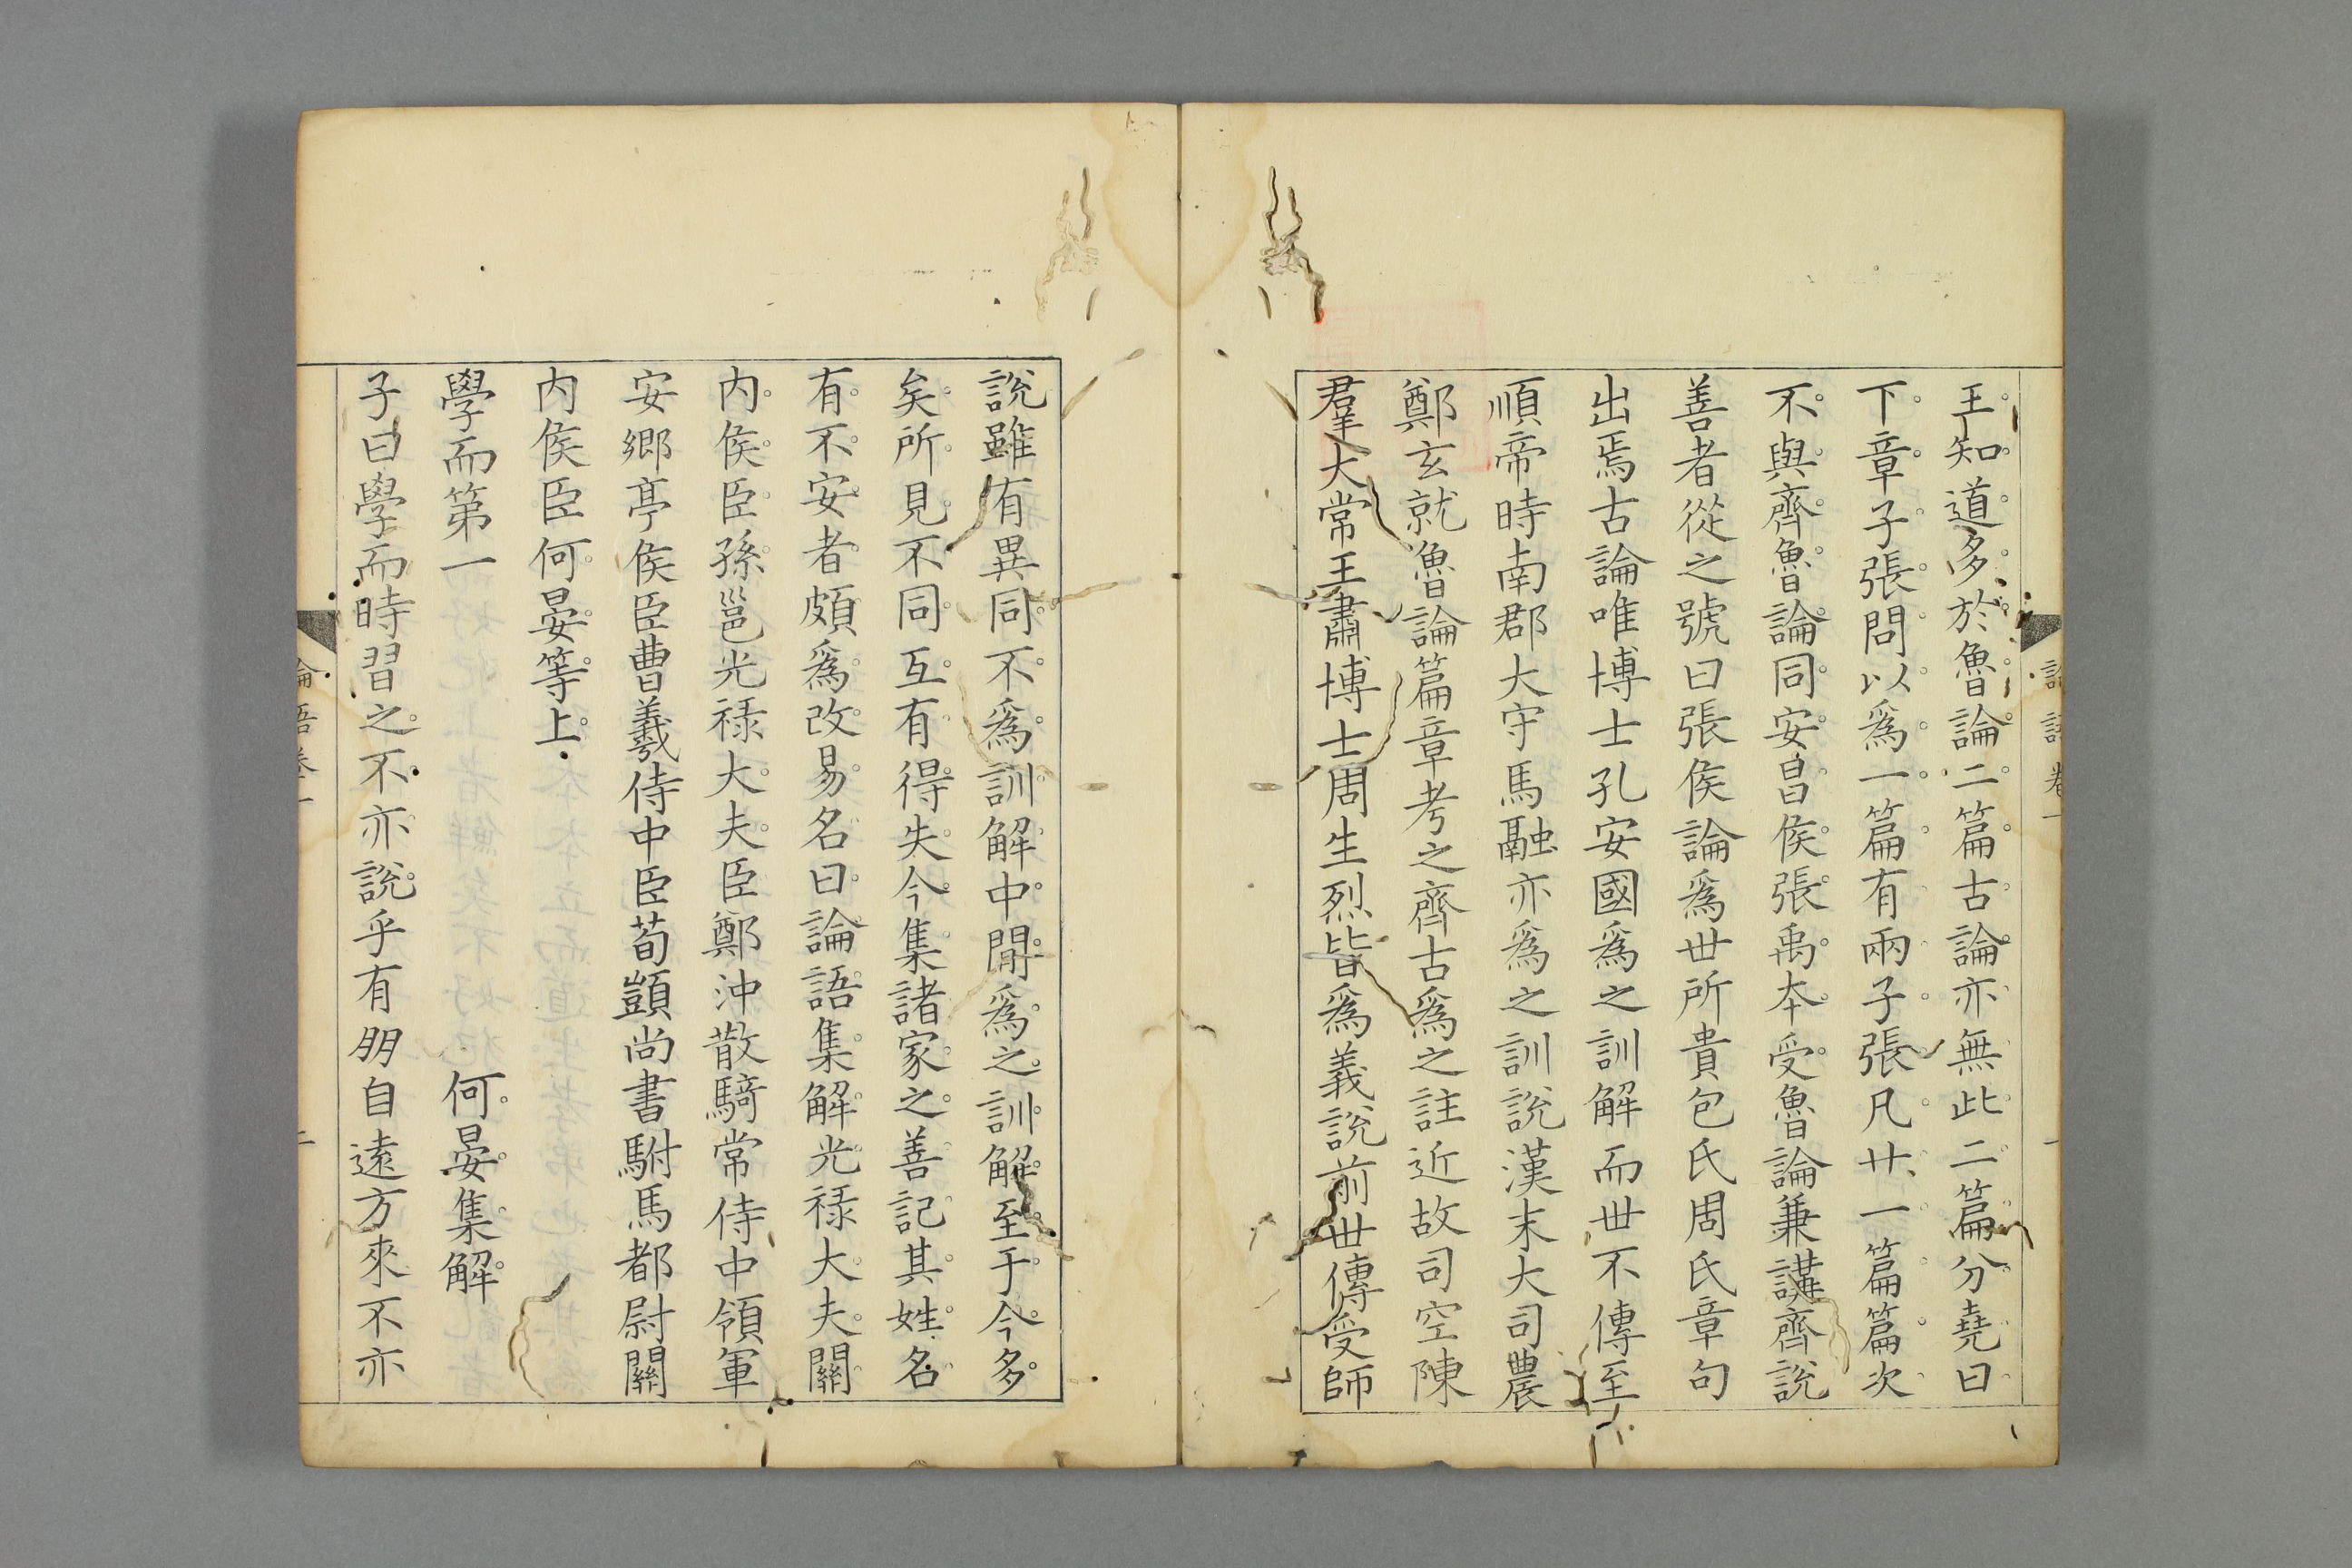 論語卷一 一
王知道多於魯論二篇古論亦無此二篇分堯曰
下章子張問以爲一篇有兩子張凡廿一篇篇次
不與齊魯論同安昌侯張禹本受魯論兼講齊說
善者從之號曰張侯論爲世所貴包氏周氏章句
出焉古論唯博士孔安國爲之訓解而世不傳至
順帝時南郡大守馬融亦爲之訓說漢末大司農
鄭玄就魯論篇章考之齊古爲之註近故司空陳
羣大常王肅博士周生烈皆爲義說前世傳受師
說雖有異同不爲訓解中間爲之訓解至于今多
矣所見不同互有得失今集諸家之善記其姓名
有不安者頗爲改易名曰論語集解光祿大夫關
内侯臣孫邕光祿大夫臣鄭沖散騎常侍中領軍
安鄉亭侯臣曹羲侍中臣荀顗尚書駙馬都尉關
内侯臣何晏等上
學而第一 何晏集解
子曰學而時習之不亦說乎有朋自遠方來不亦
論語卷一 二